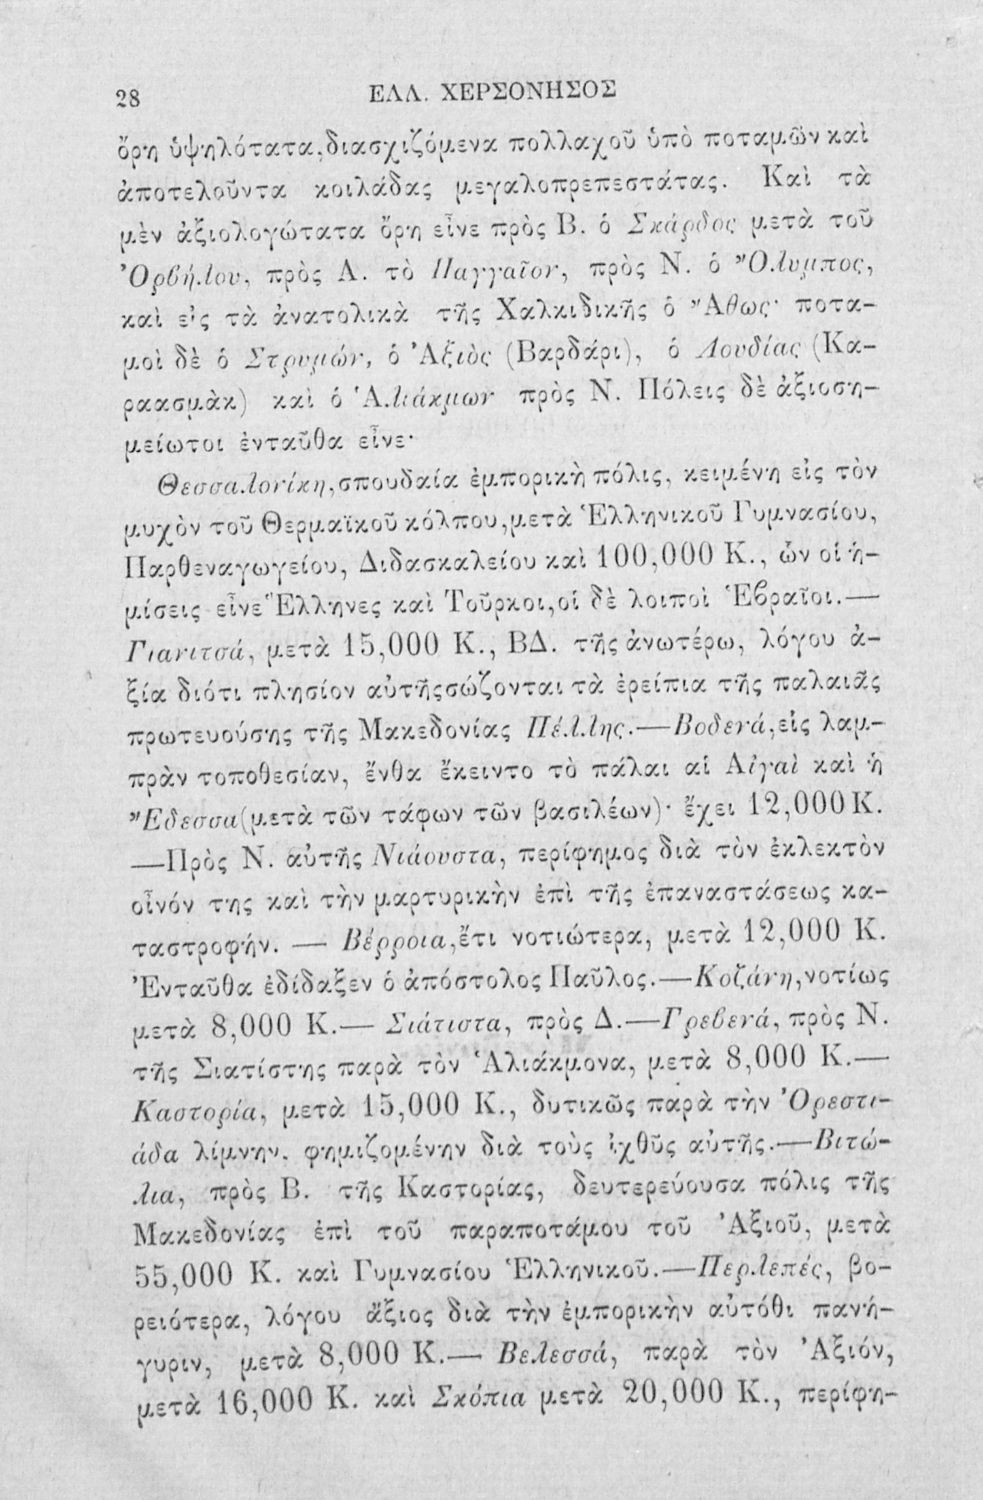 28 ΕΛΛ. ΧΕΡΣΟΝΗΣΟΣ
ὄρη ὑψηλότατα, διασχιζόμενα πολλαχοῦ ὑπὸ ποταμῶν καὶ
ἀποτελοῦντα κοιλάδας μεγαλοπρεπεστάτας. Καὶ τὰ
μὲν ἀξιολογώτατα ὄρη εἶνε πρὸς Β. ὁ Σκάρδος μετὰ τοῦ
Ὀρβήλου, πρὸς Α. τὸ Παγγαῖον, πρὸς Ν. ὁ Ὄλυμπος,
καὶ εἰς τὰ ἀνατολικὰ τῆς Χαλκιδικῆς ὁ Ἄθως· ποτα-
μοὶ δὲ ὁ Στρυμών, ὁ Ἀξιὸς (Βαρδάρι), ὁ Λουδίας (Κα-
ραασμὰκ) καὶ ὁ Ἁλιάκμων πρὸς Ν. Πόλεις δὲ ἀξιοση-
μείωτοι ἐνταῦθα εἶνε·
Θεσσαλονίκη, σπουδαία ἐμπορικὴ πόλις, κειμένη εἰς τὸν
μυχὸν τοῦ Θερμαϊκοῦ κόλπου, μετὰ Ἑλληνικοῦ Γυμνασίου,
Παρθεναγωγείου, Διδασκαλείου καὶ 100,000 Κ., ὧν οἱ ἡ-
μίσεις εἶνε Ἕλληνες καὶ Τοῦρκοι, οἱ δὲ λοιποὶ Ἑβραῖοι.—
Γιανιτσά, μετὰ 15,000 Κ., ΒΔ. τῆς ἀνωτέρω, λόγου ἀ-
ξία διότι πλησίον αὐτῆς σώζονται τὰ ἐρείπια τῆς παλαιᾶς
πρωτευούσης τῆς Μακεδονίας Πέλλης.—Βοδενά, εἰς λαμ-
πρὰν τοποθεσίαν, ἔνθα ἔκειντο τὸ πάλαι αἱ Αἰγαὶ καὶ ἡ
Ἔδεσσα (μετὰ τῶν τάφων τῶν βασιλέων)· ἔχει 12,000 Κ.
—Πρὸς Ν. αὐτῆς Νιάουστα, περίφημος διὰ τὸν ἐκλεκτὸν
οἶνόν της καὶ τὴν μαρτυρικὴν ἐπὶ τῆς ἐπαναστάσεως κα-
ταστροφήν. — Βέρροια, ἔτι νοτιώτερα, μετὰ 12,000 Κ.
Ἐνταῦθα ἐδίδαξεν ὁ ἀπόστολος Παῦλος.—Κοζάνη, νοτίως
μετὰ 8,000 Κ.— Σιάτιστα, πρὸς Δ.—Γρεβενά, πρὸς Ν.
τῆς Σιατίστης παρὰ τὸν Ἁλιάκμονα, μετὰ 8,000 Κ.—
Καστορία, μετὰ 15,000 Κ., δυτικῶς παρὰ τὴν Ὀρεστι-
άδα λίμνην, φημιζομένην διὰ τοὺς ἰχθῦς αὐτῆς.—Βιτώ-
λια, πρὸς Β. τῆς Καστορίας, δευτερεύουσα πόλις τῆς
Μακεδονίας ἐπὶ τοῦ παραποτάμου τοῦ Ἀξιοῦ, μετὰ
55,000 Κ. καὶ Γυμνασίου Ἑλληνικοῦ.—Περλεπές, βο-
ρειότερα, λόγου ἄξιος διὰ τὴν ἐμπορικὴν αὐτόθι πανή-
γυριν, μετὰ 8,000 Κ.— Βελεσσά, παρὰ τὸν Ἀξιόν,
μετὰ 16,000 Κ. καὶ Σκόπια μετὰ 20,000 Κ., περίφη-